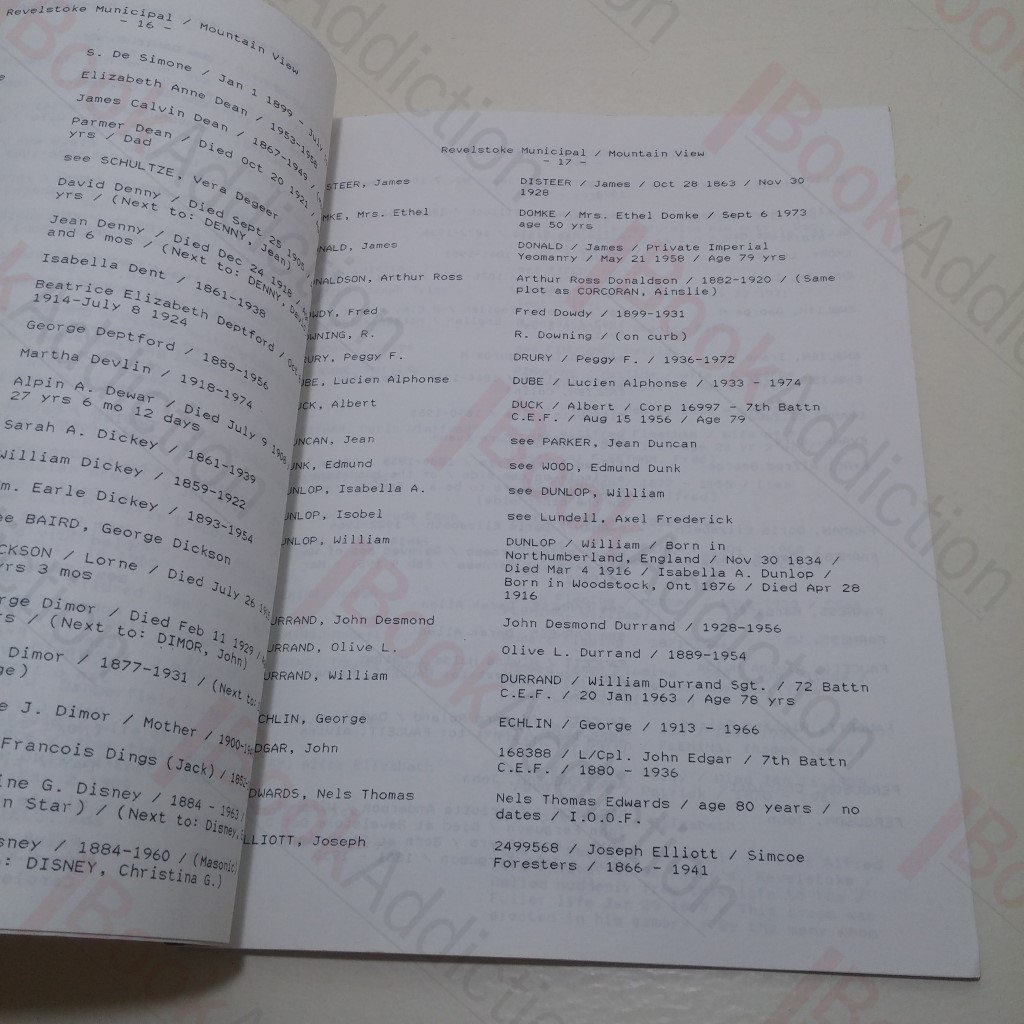 Revelstoke Municipal / Mountain View
- 16 -
S. De Simone / Jan 1 1899 - July
Elizabeth Anne Dean / 1953-1958
James Calvin Dean / 1867-1949 /
Parmer Dean / Died Oct 20 1921 /
yrs / Dad
see SCHULTZE, Vera Degeer
David Denny / Died Sept 25 1905 /
yrs / (Next to: DENNY, Jean)
Jean Denny / Died Dec 24 1918 /
and 6 mos / (Next to: DENNY, David)
Isabella Dent / 1861-1938
Beatrice Elizabeth Deptford / Oct
1914-July 8 1924
George Deptford / 1889-1956
Martha Devlin / 1918-1974
Alpin A. Dewar / Died July 9 1908
27 yrs 6 mo 12 days
Sarah A. Dickey / 1861-1939
William Dickey / 1859-1922
m. Earle Dickey / 1893-1954
ee BAIRD, George Dickson
CKSON / Lorne / Died July 26
yrs 3 mos
rge Dimor / Died Feb 11 1929 /
rs / (Next to: DIMOR, John)
Dimor / 1877-1931 / (Next to:
ge)
e J. Dimor / Mother /
Francois Dings (Jack) /
ine G. Disney / 1884 - 1963 /
n Star) / (Next to: Disney,
sney / 1884-1960 / (Masonic)
: DISNEY, Christina G.)
Revelstoke Municipal / Mountain View
- 17 -
STEER, James DISTEER / James / Oct 28 1863 / Nov 30
1928
MKE, Mrs. Ethel DOMKE / Mrs. Ethel Domke / Sept 6 1973
age 50 yrs
NALD, James DONALD / James / Private Imperial
Yeomanry / May 21 1958 / Age 79 yrs
NALDSON, Arthur Ross Arthur Ross Donaldson / 1882-1920 / (Same
plot as CORCORAN, Ainslie)
WDY, Fred Fred Dowdy / 1899-1931
WNING, R. R. Downing / (on curb)
RURY, Peggy F. DRURY / Peggy F. / 1936-1972
UBE, Lucien Alphonse DUBE / Lucien Alphonse / 1933 - 1974
UCK, Albert DUCK / Albert / Corp 16997 - 7th Battn
C.E.F. / Aug 15 1956 / Age 79
UNCAN, Jean see PARKER, Jean Duncan
UNK, Edmund see WOOD, Edmund Dunk
UNLOP, Isabella A. see DUNLOP, William
UNLOP, Isobel see Lundell, Axel Frederick
UNLOP, William DUNLOP / William / Born in
Northumberland, England / Nov 30 1834 /
Died Mar 4 1916 / Isabella A. Dunlop /
Born in Woodstock, Ont 1876 / Died Apr 28
1916
URRAND, John Desmond John Desmond Durrand / 1928-1956
URRAND, Olive L. Olive L. Durrand / 1889-1954
URRAND, William DURRAND / William Durrand Sgt. / 72 Battn
C.E.F. / 20 Jan 1963 / Age 78 yrs
CHLIN, George ECHLIN / George / 1913 - 1966
DGAR, John 168388 / L/Cpl. John Edgar / 7th Battn
C.E.F. / 1880 - 1936
DWARDS, Nels Thomas Nels Thomas Edwards / age 80 years / no
dates / I.O.O.F.
LLIOTT, Joseph 2499568 / Joseph Elliott / Simcoe
Foresters / 1866 - 1941
BookAddiction